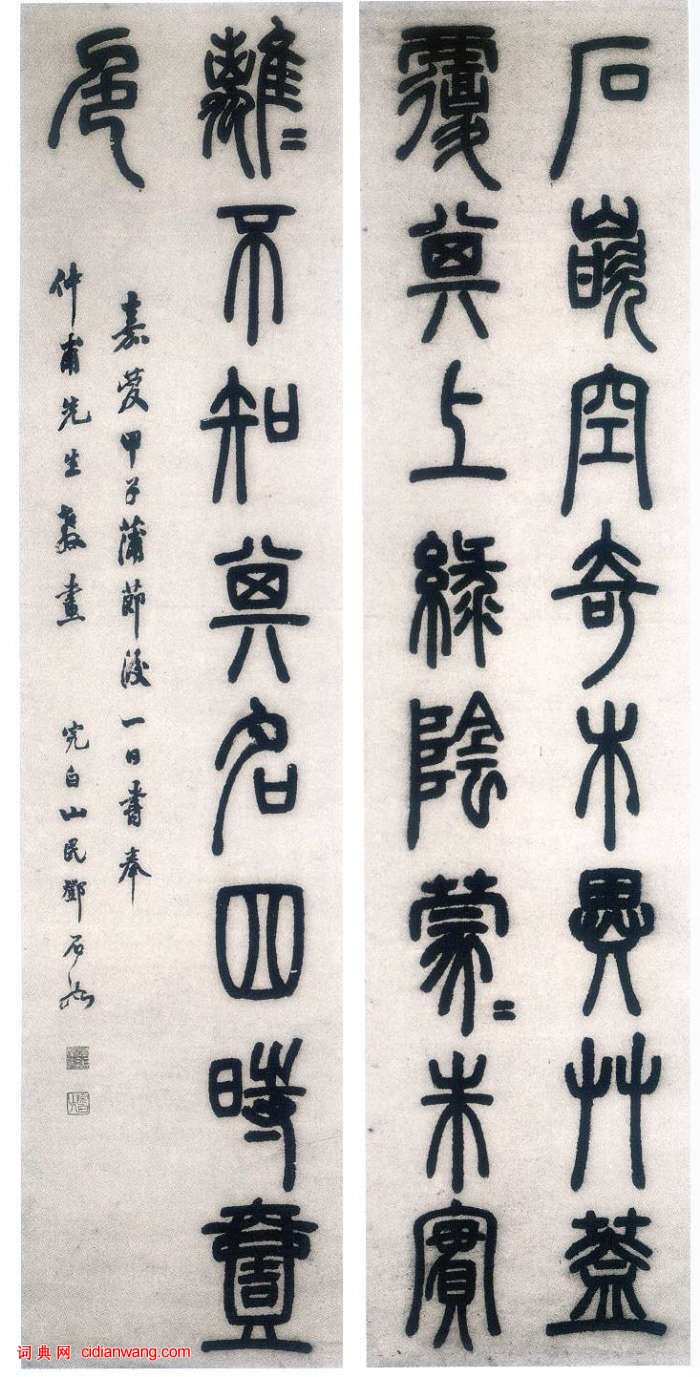 石嵌空奇木異艸蓋
覆其上綠陰蒙〻朱實
離〻不知其名四時壹
色
嘉慶甲子蒲節後一日書奉
仲甫先生教畫 完白山民鄧石如
词典网 cidianwang.com